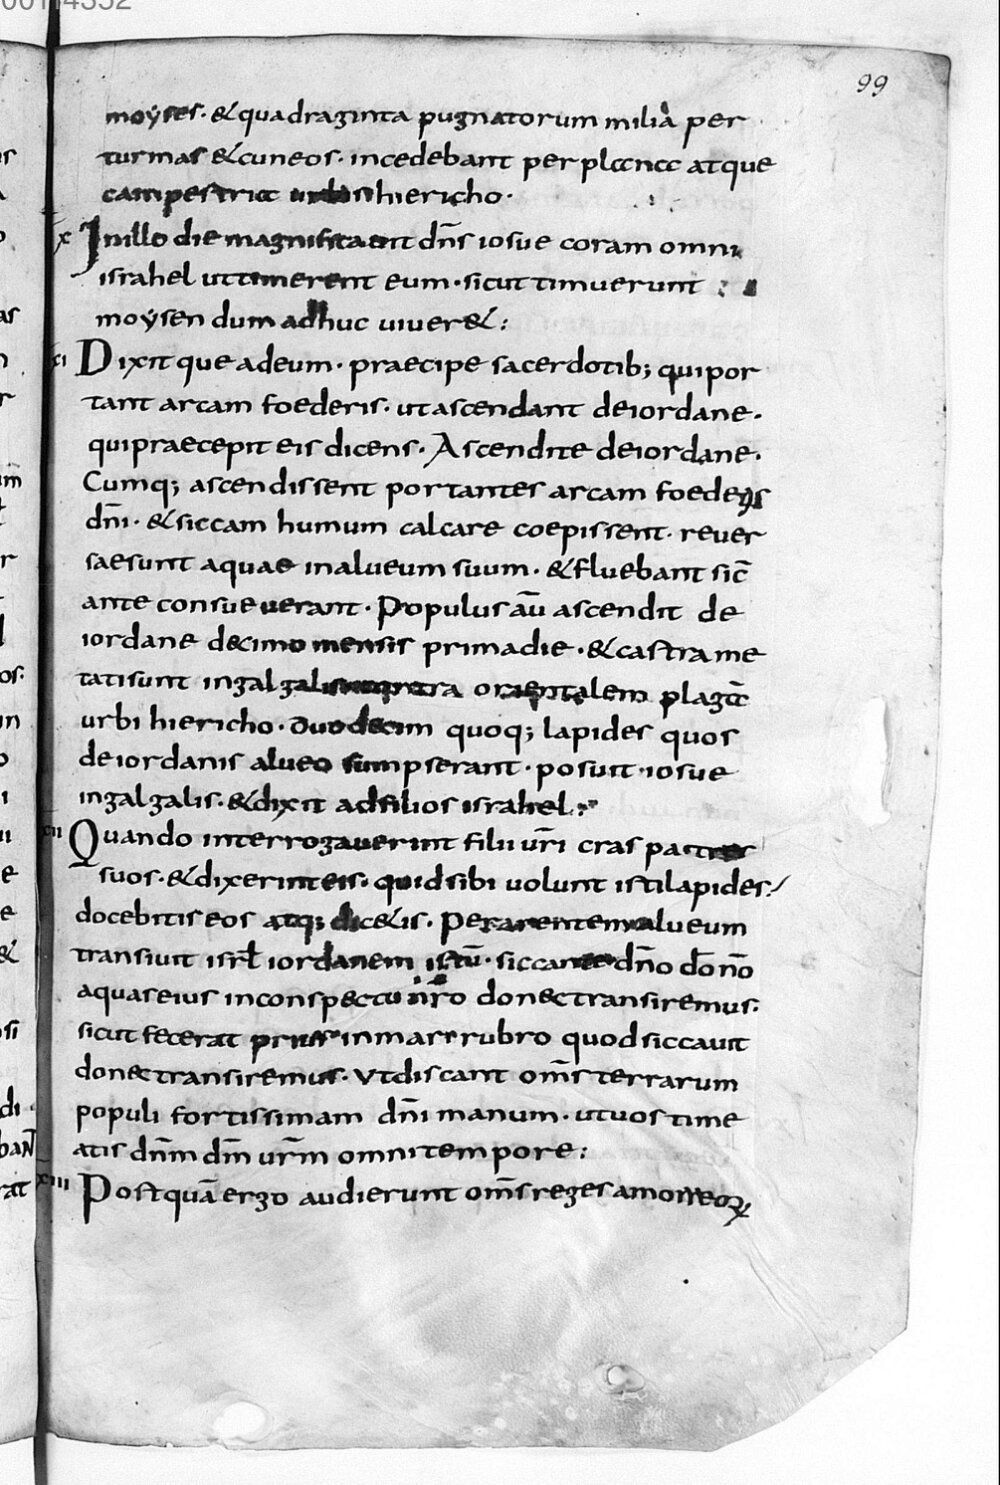 99
moyses · & quadraginta pugnatorum milia per
turmas & cuneos · incedebant per plana atque
campestria urbis hiericho ·
x In illo die magnificauit dn̄s iosue coram omni
israhel ut timerent eum · sicut timuerunt
moysen dum adhuc uiuer& :
xi Dixitque ad eum · praecipe sacerdotib; qui por
tant arcam foederis · ut ascendant de iordane ·
qui praecepit eis dicens · Ascendite de iordane ·
Cumq; ascendissent portantes arcam foederis
dn̄i · & siccam humum calcare coepissent · reuer
sae sunt aquae in alueum suum · & fluebant sic̄
ante consueuerant · Populus au̅ ascendit de
iordane decimo mensis prima die · & castra me
tati sunt in galgalis contra orientalem plagā
urbi hiericho · duodecim quoq; lapides quos
de iordanis alueo sumpserant · posuit · iosue
in galgalis · & dixit ad filios israhel :
xii Quando interrogauerint filii ur̄i cras patres
suos · & dixerint eis · quid sibi uolunt isti lapides /
docebitis eos atq; dic&is · Per arentem alueum
transiuit isrł iordanem istū · siccante dn̄o do̅ n̅o
aquas eius in conspectu nr̄o donec transiremus ·
sicut fecerat prius in mari rubro quod siccauit
donec transiremus · Vt discant om̄s terrarum
populi fortissimam dn̄i manum · ut uos time
atis dn̄m dm̄ ur̄m omni tempore :
xiii Postquā ergo audierunt om̄s reges amorreoꝝ